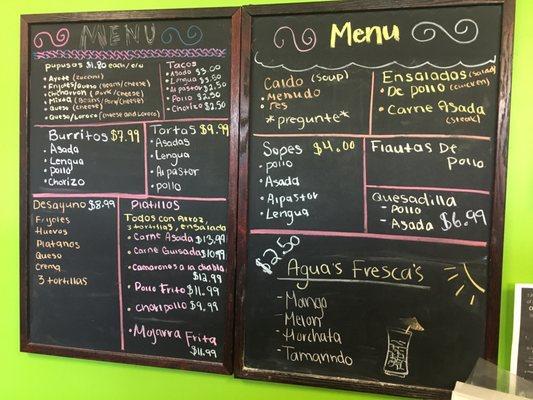 MENU
Pupusas $1.80 each/c/u
Ayote (zuccini)
Frijoles/Queso (Beans/cheese)
Chicharron (Pork/cheese)
Mixta (Beans/Pork/cheese)
Queso (cheese)
Queso/Loroco (cheese and Loroco)
Tacos
Asado $3.00
Lengua $3.00
Alpastor $2.50
Pollo $2.50
Chorizo $2.50
Burritos $7.99
Asada
Lengua
Pollo
Chorizo
Tortas $9.99
Asados
Lengua
Alpastor
pollo
Desayuno $8.99
Frijoles
Huevos
Platanos
Queso
Crema
3 tortillas
Platillos
Todos con Arroz,
3 tortillas, ensalada
Carne Asada $13.99
Carne Guisada $10.99
Camarones a la chabla
$12.99
Pollo Frito $11.99
Choripollo $9.99
Mojarra Frita
$11.99
Menu
Caldo (soup)
Menudo
res
*pregunte*
Ensalados (Salad)
De pollo (chicken)
Carne Asada
(steak)
Sopes $4.00
pollo
Asada
Alpastor
Lengua
Flautas De
Pollo
Quesadilla
Pollo
Asada $6.99
$2.50
Agua's Fresca's
Mango
Melon
Horchata
Tamarindo